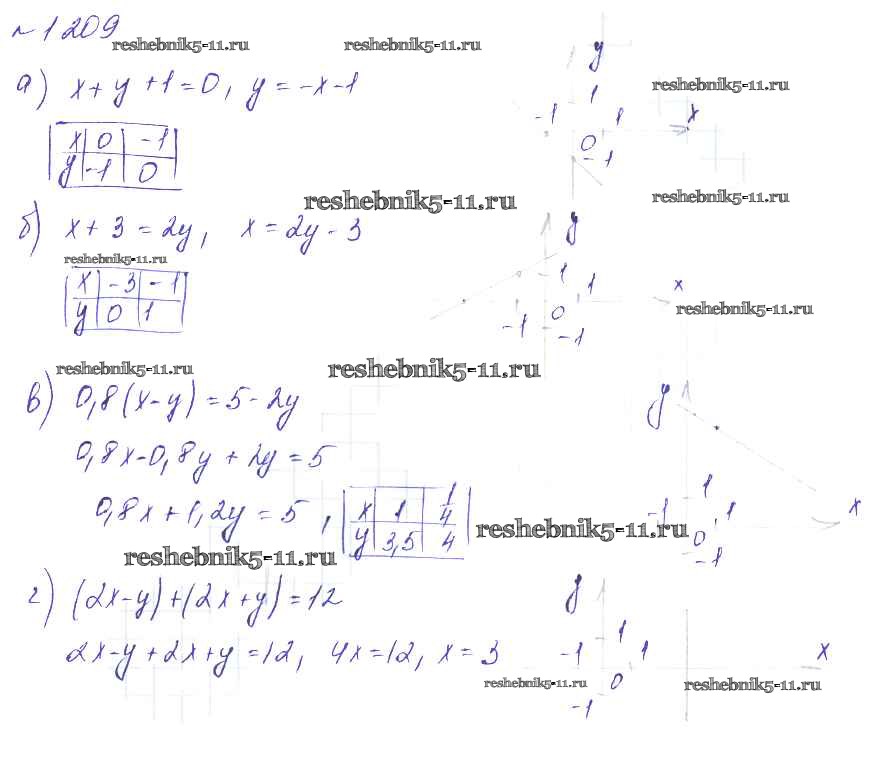 №1209
reshebnik5-11.ru reshebnik5-11.ru
а) x + y + 1 = 0, y = -x - 1
reshebnik5-11.ru
y
1
-1 1 x
0
-1
x 0 -1
y -1 0
reshebnik5-11.ru reshebnik5-11.ru
б) x + 3 = 2y, x = 2y - 3
reshebnik5-11.ru
y
1
1 x
0
-1
-1
x -3 -1
y 0 1
reshebnik5-11.ru
reshebnik5-11.ru reshebnik5-11.ru
в) 0,8(x-y) = 5 - 2y
0,8x - 0,8y + 2y = 5
0,8x + 1,2y = 5,
x 1 1/4
y 3,5 4
y
1
-1 1 x
0
-1
reshebnik5-11.ru
reshebnik5-11.ru
г) (2x-y)+(2x+y)=12
2x-y+2x+y=12, 4x=12, x=3
y
1
-1 1 x
0
-1
reshebnik5-11.ru reshebnik5-11.ru